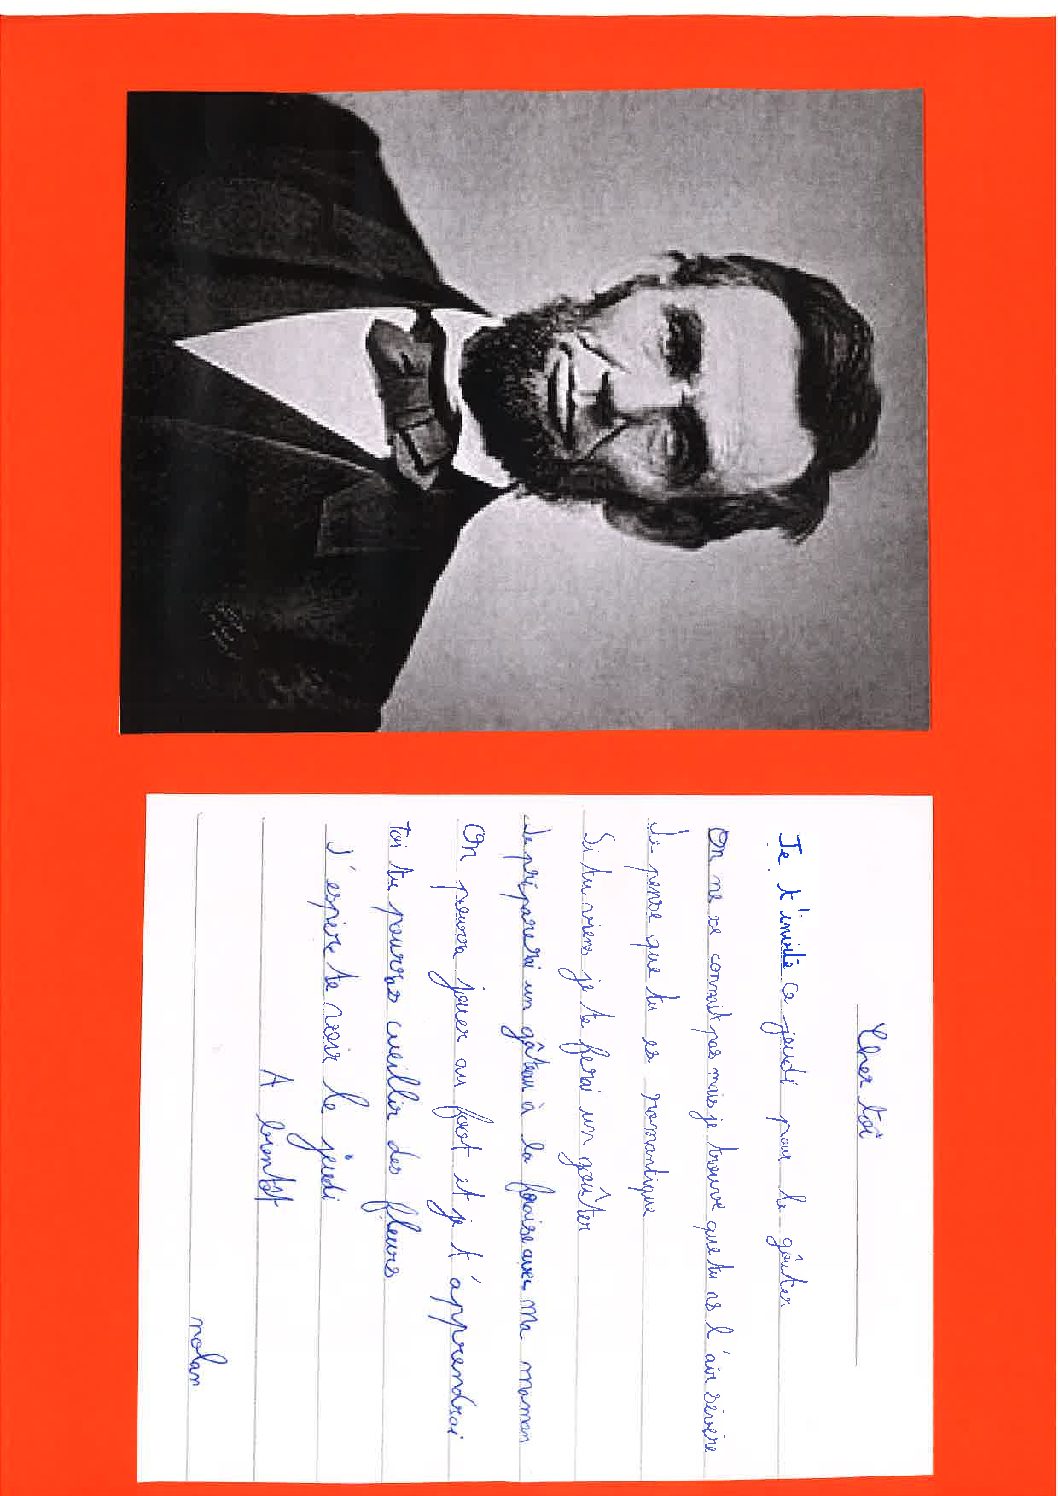 Cher toi
Je t'invite ce jeudi pour le goûter
On ne se connait pas mais je trouve que tu as l'air sévère
Je pense que tu es romantique
Si tu viens je te ferai un goûter
Je préparerai un gâteau à la fraise avec ma maman
On pourra jouer au foot et je t'apprendrai
toi tu pourras cueillir des fleurs
J'espère te voir le jeudi
A bientôt
nolan